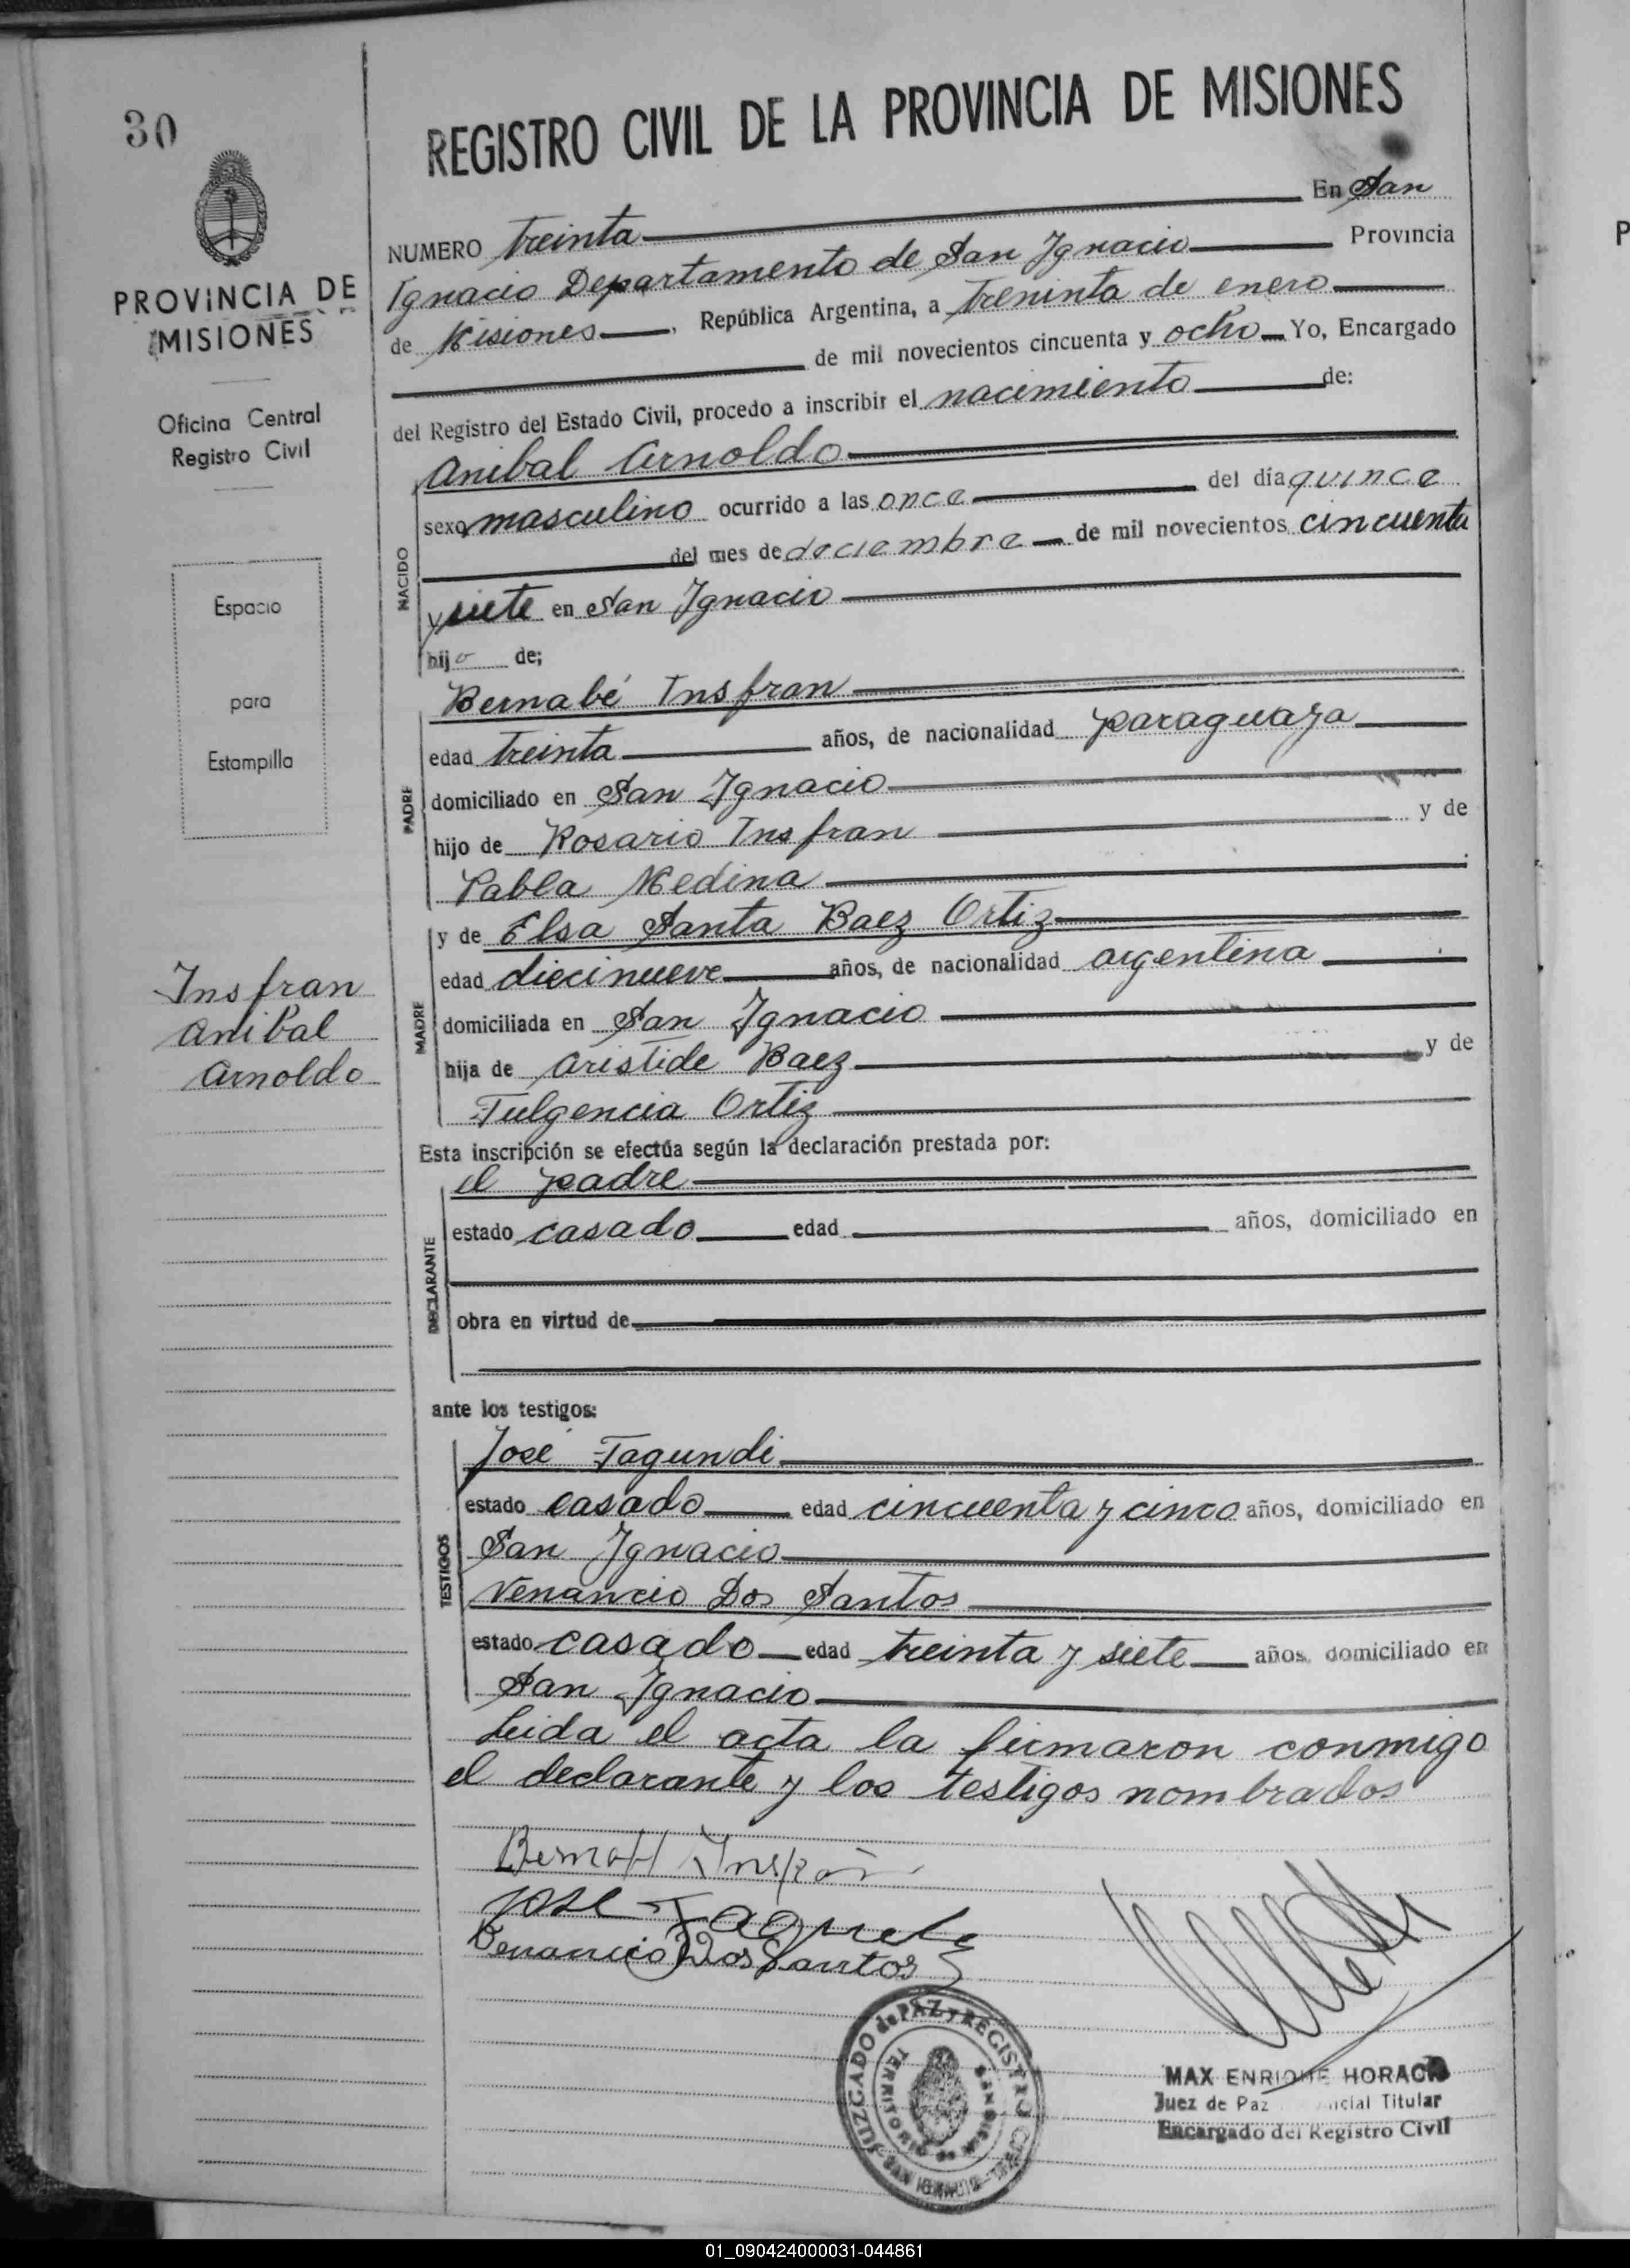 30
PROVINCIA DE
MISIONES
Oficina Central
Registro Civil
Espacio
para
Estampilla
Insfran
Anibal
Arnoldo
REGISTRO CIVIL DE LA PROVINCIA DE MISIONES
NUMERO treinta En San
Ignacio Departamento de San Ignacio Provincia
de Misiones, República Argentina, a treninta de enero
de mil novecientos cincuenta y ocho Yo, Encargado
del Registro del Estado Civil, procedo a inscribir el nacimiento de:
NACIDO
Anibal Arnoldo
sexo masculino ocurrido a las once del día quince
del mes de deciembre de mil novecientos cincuenta
y siete en San Ignacio
hijo de;
PADRE
Bernabé Insfran
edad treinta años, de nacionalidad paraguaya
domiciliado en San Ignacio
hijo de Rosario Insfran y de
Pabla Medina
MADRE
y de Elsa Santa Baez Ortiz
edad diecinueve años, de nacionalidad argentina
domiciliada en San Ignacio
hija de Aristide Baez y de
Fulgencia Ortiz
Esta inscripción se efectúa según la declaración prestada por:
DECLARANTE
el padre
estado casado edad años, domiciliado en
obra en virtud de
ante los testigos:
TESTIGOS
José Fagundi
estado casado edad cincuenta y cinco años, domiciliado en
San Ignacio
Venancio Dos Santos
estado casado edad treinta y siete años, domiciliado en
San Ignacio
Leida el acta la firmaron conmigo
el declarante y los testigos nombrados
Jose
Benancio Dos Santos
JUZGADO de PAZ Y REGISTRO CIVIL
SAN IGNACIO
TERRITORIO DE MISIONES
MAX ENRIQUE HORACIO
Juez de Paz Titular
Encargado del Registro Civil
01_090424000031-044861
P